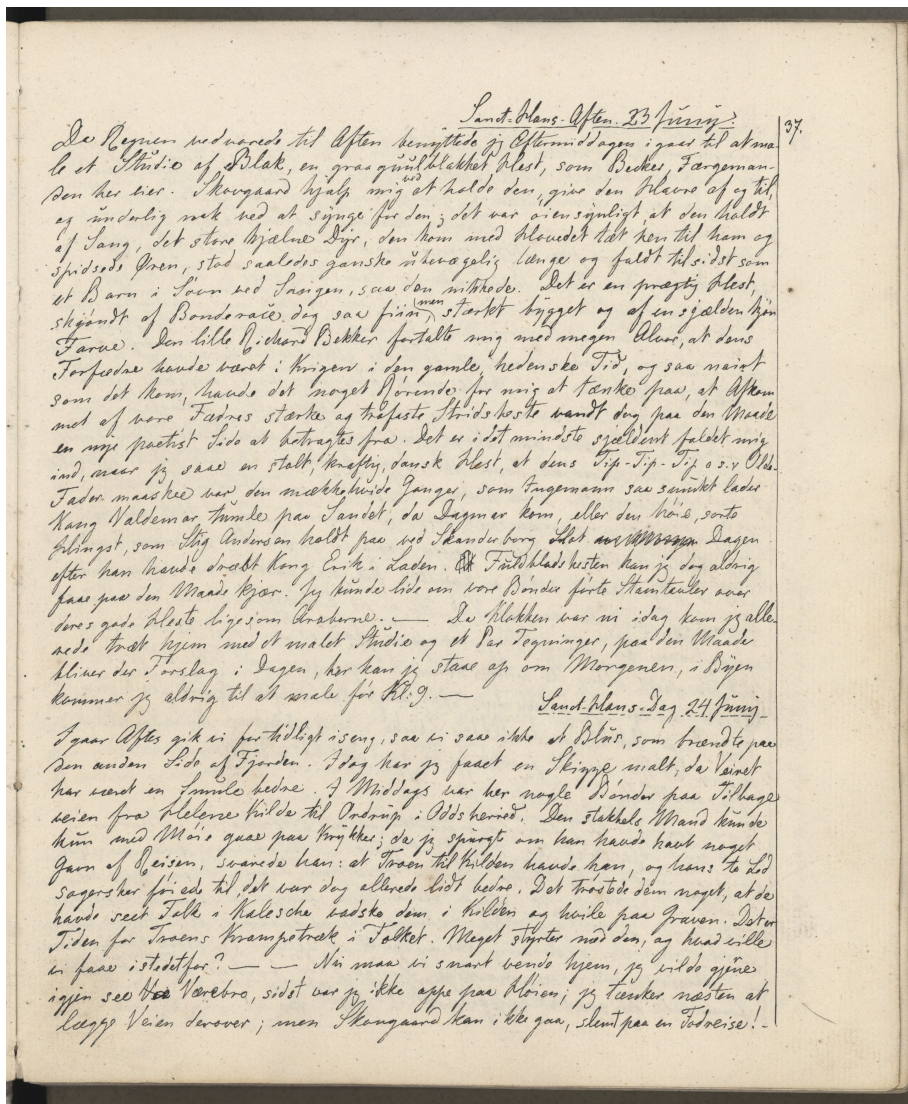 Sanct-Hans-Aften. 23 Juny.
37.
Da Regnen vedvarede til Aften benyttede jeg Eftermiddagen igaar til at ma-
le et Studie af Blak, en graaguulblakket Hest, som Becker, Færgeman-
den her eier. Skovgaard hjalp mig ved at holde den, give den Havre af og til,
og underlig nok ved at synge for den; det var øiensynligt at den holdt
af Sang, det store skjælne Dyr, den kom med Hovedet tæt hen til ham og
spidsede Øren, stod saaledes ganske ubevægelig længe og faldt tilsidst som
et Barn i Søvn ved Sangen, saa den nikkede. Det er en prægtig Hest,
skjøndt af Bonderace, dog saa fiin men stærkt bygget og af en sjælden skjøn
Farve. Den lille Richard Bekker fortalte mig med megen Alvor, at dens
Forfædre havde været i Krigen i den gamle, hedenske Tid, og saa naivt
som det kom, havde det noget Rørende for mig at tænke paa, at Afkom-
met af vore Fædres stærke og trofaste Stridsheste vandt dog paa den Maade
en nye poetisk Side at betragtes fra. Det er idetmindste sjældent faldet mig
ind, naar jeg saae en stolt, kraftig, dansk Hest, at dens Tip-Tip-Tip o.s.v Olde-
Fader maaskee var den melkehvide Ganger, som Ingemann saa smukt lader
Kong Valdemar tumle paa Sandet, da Dagmar kom, eller den høie, sorte
Hingst, som Stig Andersen holdt paa ved Skanderborg Slot Dagen
efter han havde dræbt Kong Erik i Laden. Fuldblodshesten kan jeg dog aldrig
faae paa den Maade kjær. Jeg kunde lide om vore Bønder førte Stamtavler over
deres gode Heste ligesom Araberne. — Da Klokken var ni idag kom jeg alle-
rede træt hjem med et malet Studie og et Par Tegninger, paa den Maade
bliver der Forslag i Dagen, her kan jeg staae op om Morgenen, i Byen
kommer jeg aldrig til at male før Kl: 9. —
Sanct-Hans-Dag 24 Juny.
Igaar Aftes gik vi for tidligt iseng, saa vi saae ikke et Blus, som brændte paa
den anden Side af Fjorden. Idag har jeg faaet en Skizze malt, da Veiret
har været en Smule bedre. I Middags var her nogle Bønder paa Tilbage
veien fra Helene Kilde til Ordrup i Oddsherred. Den stakkels Mand kunde
kun med Møie gaae paa Krykker; da jeg spurgte om han havde havt noget
Gavn af Reisen, svarede han: at Troen til Kilden havde han, og hans to Led
sagersker føiede til, det var dog allerede lidt bedre. Det trøstede dem noget, at de
havde seet Folk i Kalesche vadske dem i Kilden og hvile paa Graven. Det er
Tiden for Troens Krampetræk i Folket. Meget styrter med den, og hvad ville
vi faae istedetfor? — — Nu maa vi snart vende hjem, jeg vilde gjerne
igjen see Værebro, sidst var jeg ikke oppe paa Høien; jeg tænker næsten at
lægge Veien derover; men Skovgaard kan ikke gaa, slemt paa en Fodreise! -